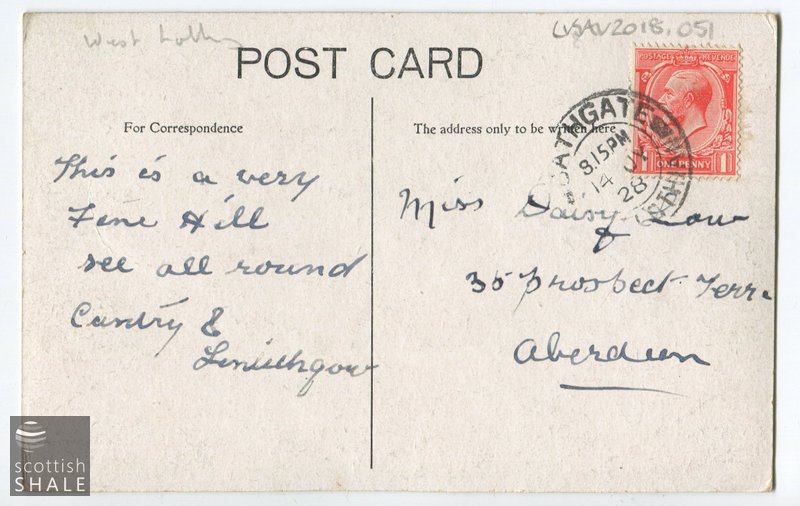 West
LVSAV2018.051
POST CARD
For Correspondence
The address only to be written here
POSTAGE REVENUE
ONE PENNY
1
BATHGATE
8.15PM
14
28
This is a very
Fine Hill
see all round
Cuntry &
Linlithgow
Miss Daisy Law
35 Prospect Terr.
Aberdeen
scottish
SHALE